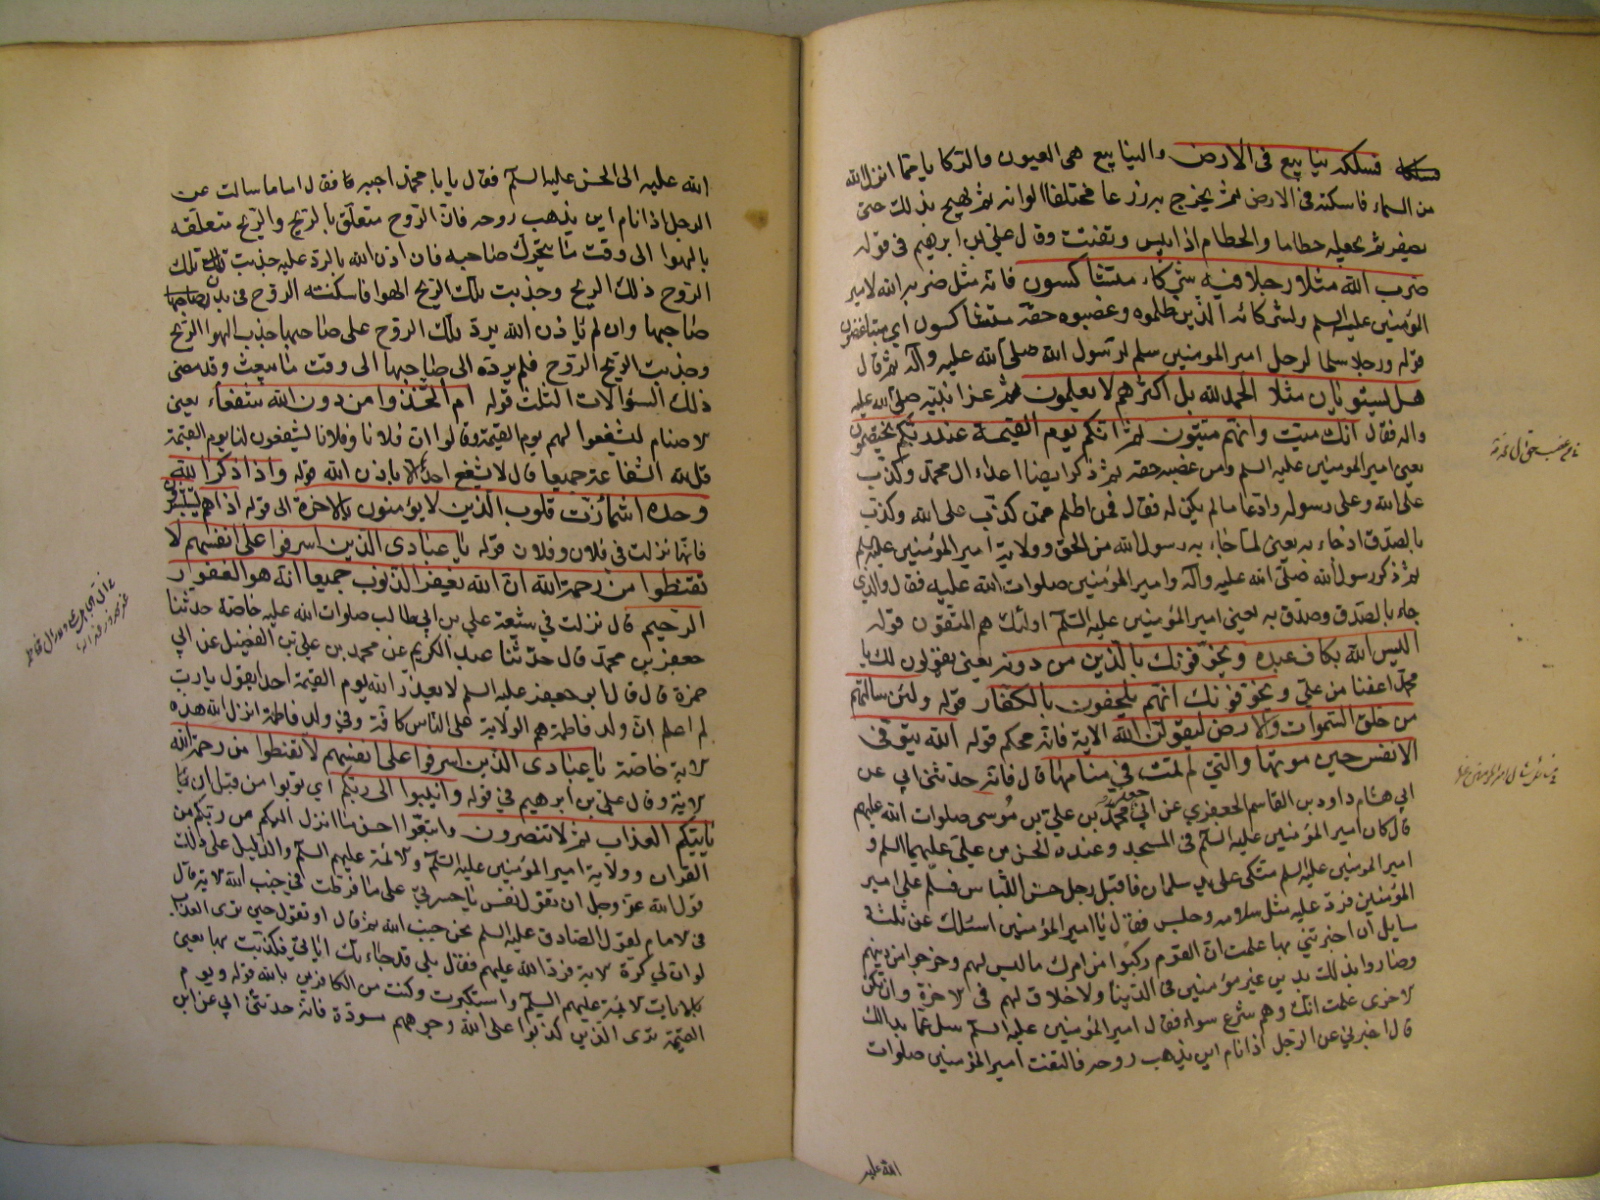 فسلكه ينابيع فى الارض والينابيع هى العيون والركايا مما انزل الله
من السماء فاسكنه فى الارض ثم يخرج به زرعا مختلفا الوانه ثم يهيج بذلك حتى
يصفر ثم يجعله حطاما والحطام اذا يبس وتفتت وقال على بن ابرهيم فى قوله
ضرب الله مثلا رجلا فيه شركاء متشاكسون فانه مثل ضربه الله لامير
المؤمنين عليه السلم ولشركائه الذين ظلموه وغصبوه حقه متشاكسون اي متباغضون
قوله ورجلا سلما لرجل امير المومنين سلم لرسول الله صلى الله عليه وآله ثم قال
هل يستويان مثلا الحمد لله بل اكثرهم لا يعلمون ثم عزا نبيه صلى الله عليه
واله فقال انك ميت وانهم ميتون ثم انكم يوم القيمة عند ربكم يختصمون
يعنى امير المومنين عليه السلم ومن غصبه حقه ثم ذكر ايضا اعداء ال محمد وكذب
على الله وعلى رسوله وادعا مالم يكن له فقال فمن اظلم ممن كذب على الله وكذب
بالصدق اذ جاء به يعنى لما جاء به رسول الله من الحق وولاية امير المؤمنين عليه السلم
ثم ذكر رسول الله صلى الله عليه وآله وامير المؤمنين صلوات الله عليه فقال والذى
جاء بالصدق وصدق به يعنى امير المؤمنين عليه السلم اولئك هم المتقون قوله
اليس الله بكاف عبده ويخوفونك بالذين من دونه يعنى يقولون لك يا
محمد اعفنا من على ويخوفونك انهم يلحقون بالكفار قوله ولئن سالتهم
من خلق السموات والارض ليقولن الله الاية فانه محكم قوله الله يتوفى
الانفس حين موتها والتى لم تمت فى منامها قال فانه حدثنى ابى عن
ابي هشام داود بن القاسم الجعفري عن ابي جعفر محمد بن علي بن موسى صلوات الله عليهم
قال كان امير المؤمنين عليه السلم فى المسجد وعنده الحسن بن على عليهما السلم و
امير المومنين عليه السلم متكى على يد سلمان فاقبل رجل حسن اللباس فسلم على امير
المؤمنين فرد عليه مثل سلامه وجلس فقال يا امير المؤمنين اسئلك عن ثلثة
سايل ان اخبرتني بها علمت ان القوم ركبوا من امرك ما ليس لهم وخرجوا من دينهم
وصاروا بذلك بدين غير مؤمنين فى الدنيا ولا خلاق لهم فى الاخرة وان تكن
الاخرى علمت انك وهم شرع سواء فقال امير المؤمنين عليه السلم سل عما بدا لك
قال اخبرني عن الرجل اذا نام اين يذهب روحه فالتفت امير المؤمنين صلوات
الله عليه
الله عليه الى الحسن عليه السلم فقال يا با محمد اجبه فقال اما ما سالت عن
الرجل اذا نام اين يذهب روحه فان الروح متعلق بالريح والريح متعلقه
بالهوا الى وقت ما يتحرك صاحبه فان اذن الله بالرد عليه جذبت تلك
الروح ذلك الريح وجذبت تلك الريح الهوا فاسكنته الروح فى بدن
صاحبها وان لم ياذن الله يرد تلك الروح على صاحبها جذب الهوا الريح
وجذبت الريح الروح فلم يرده الى صاحبها الى وقت ما يبعث وقد مضى
ذلك السؤالات الثلث قوله ام اتخذوا من دون الله شفعاء يعنى
الاصنام ليشفعوا لهم يوم القيمة وقالوا ان فلانا وفلانا ليشفعون لنا يوم القيمة
قل لله الشفاعة جميعا قال لا يشفع احد الا باذن الله قوله واذا ذكر الله
وحده اشمازت قلوب الذين لا يؤمنون بالاخرة الى قوله اذا هم يستبشرون
فانها نزلت فى فلان وفلان قوله يا عبادى الذين اسرفوا على انفسهم لا
تقنطوا من رحمة الله ان الله يغفر الذنوب جميعا انه هو الغفور
الرحيم قال نزلت في شيعة علي بن ابي طالب صلوات الله عليه خاصة حدثنا
جعفر بن محمد قال حدثنا عبد الكريم عن محمد بن على بن الفضيل عن ابى
حمزة قال قال ابو جعفر عليه السلم لا يعذر الله يوم القيمة احدا يقول يا رب
لم اعلم ان ولد فاطمة هم الولاية على الناس كافة وفي ولد فاطمة انزل الله هذه
الاية خاصة يا عبادى الذين اسرفوا على انفسهم لا تقنطوا من رحمة الله
الاية وقال علي بن ابرهيم في قوله وانيبوا الى ربكم اي توبوا من قبل ان
ياتيكم العذاب ثم لا تنصرون واتبعوا احسن ما انزل اليكم من ربكم من
القران وولاية امير المؤمنين عليه السلم والائمة عليهم السلم والدليل على ذلك
قول الله عز وجل ان تقول نفس يا حسرتي على ما فرطت في جنب الله الاية قال
في الامام لقول الصادق عليه السلم نحن جنب الله ثم قال او تقول حين ترى العذاب
لو ان لي كرة الاية فرد الله عليهم فقال بلى قد جاءتك اياتي فكذبت بها يعنى
بالايات الائمة عليهم السلم واستكبرت وكنت من الكافرين بالله قوله ويوم
القيمة ترى الذين كذبوا على الله وجوههم مسودة فانه حدثنى ابي عن ابن